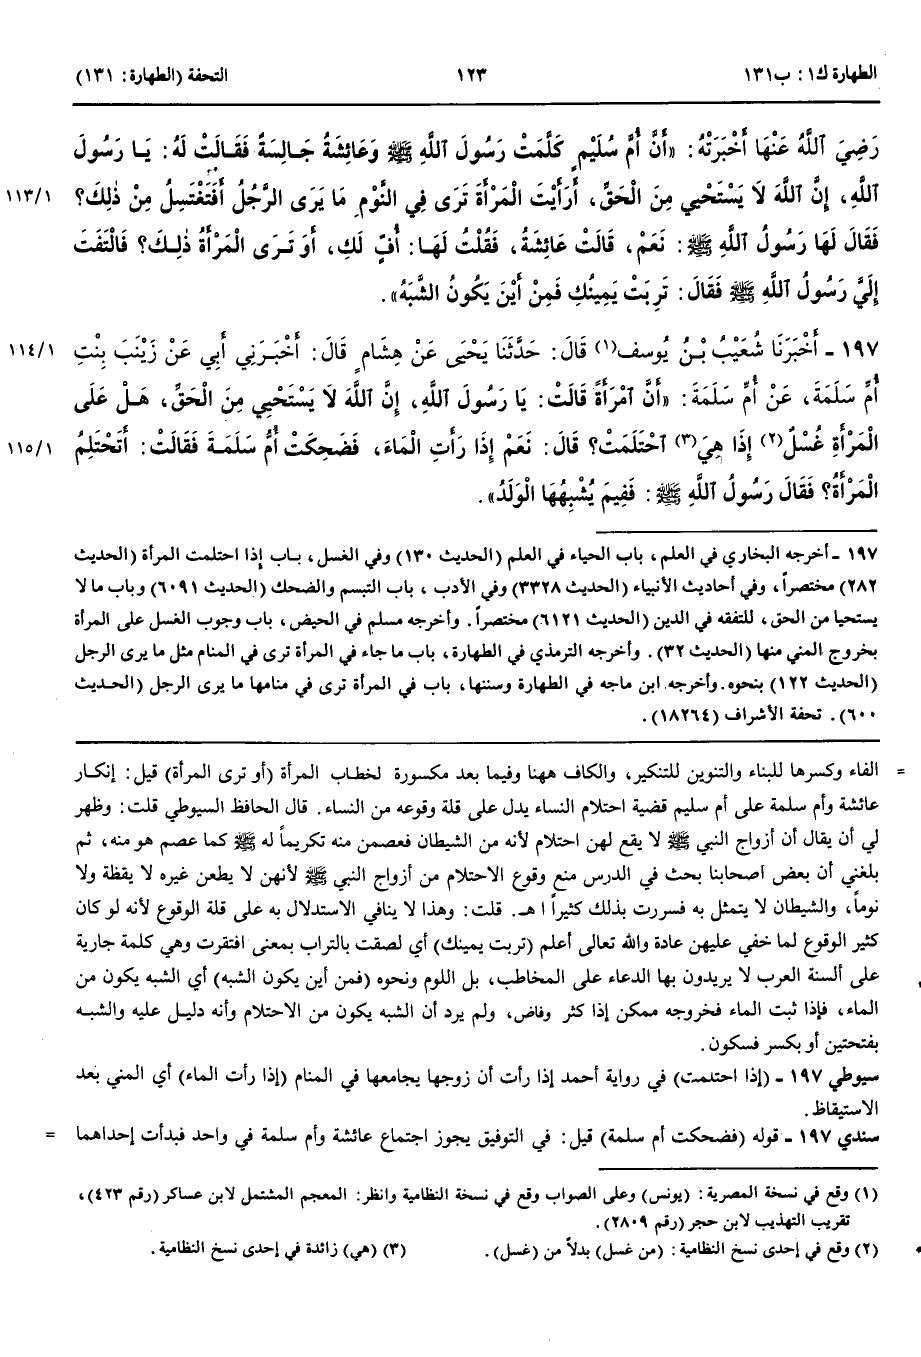 الطهارة ك١: ب١٣١
١٢٣
التحفة (الطهارة: ١٣١)
رَضِيَ ٱللَّهُ عَنْهَا أَخْبَرَتْهُ: «أَنَّ أُمَّ سُلَيْمٍ كَلَّمَتْ رَسُولَ ٱللَّهِ ﷺ وَعَائِشَةُ جَالِسَةٌ فَقَالَتْ لَهُ: يَا رَسُولَ
ٱللَّهِ، إِنَّ ٱللَّهَ لَا يَسْتَحْيِي مِنَ الْحَقِّ، أَرَأَيْتَ الْمَرْأَةَ تَرَى فِي النَّوْمِ مَا يَرَى الرَّجُلُ أَفَتَغْتَسِلُ مِنْ ذٰلِكَ؟ ١١٣/١
فَقَالَ لَهَا رَسُولُ ٱللَّهِ ﷺ: نَعَمْ، قَالَتْ عَائِشَةُ، فَقُلْتُ لَهَا: أُفٍّ لَكِ، أَوَ تَرَى الْمَرْأَةُ ذٰلِكَ؟ فَالْتَفَتَ
إِلَيَّ رَسُولُ ٱللَّهِ ﷺ فَقَالَ: تَرِبَتْ يَمِينُكِ فَمِنْ أَيْنَ يَكُونُ الشَّبَهُ».
١٩٧ - أَخْبَرَنَا شُعَيْبُ بْنُ يُوسف(١) قَالَ: حَدَّثَنَا يَحْيَى عَنْ هِشَامٍ قَالَ: أَخْبَرَنِي أَبِي عَنْ زَيْنَبَ بِنْتِ ١١٤/١
أُمِّ سَلَمَةَ، عَنْ أُمِّ سَلَمَةَ: «أَنَّ ٱمْرَأَةً قَالَتْ: يَا رَسُولَ ٱللَّهِ، إِنَّ ٱللَّهَ لَا يَسْتَحْيِي مِنَ الْحَقِّ، هَلْ عَلَى
الْمَرْأَةِ غُسْلٌ(٢) إِذَا هِيَ(٣) ٱحْتَلَمَتْ؟ قَالَ: نَعَمْ إِذَا رَأَتِ الْمَاءَ، فَضَحِكَتْ أُمُّ سَلَمَةَ فَقَالَتْ: أَتَحْتَلِمُ ١١٥/١
الْمَرْأَةُ؟ فَقَالَ رَسُولُ ٱللَّهِ ﷺ: فَفِيمَ يُشْبِهُهَا الْوَلَدُ».
١٩٧ - أخرجه البخاري في العلم، باب الحياء في العلم (الحديث ١٣٠) وفي الغسل، باب إذا احتلمت المرأة (الحديث
٢٨٢) مختصراً، وفي أحاديث الأنبياء (الحديث ٣٣٢٨) وفي الأدب، باب التبسم والضحك (الحديث ٦٠٩١) وباب ما لا
يستحيا من الحق، للتفقه في الدين (الحديث ٦١٢١) مختصراً. وأخرجه مسلم في الحيض، باب وجوب الغسل على المرأة
بخروج المني منها (الحديث ٣٢). وأخرجه الترمذي في الطهارة، باب ما جاء في المرأة ترى في المنام مثل ما يرى الرجل
(الحديث ١٢٢) بنحوه. وأخرجه ابن ماجه في الطهارة وسننها، باب في المرأة ترى في منامها ما يرى الرجل (الحديث
٦٠٠). تحفة الأشراف (١٨٢٦٤).
= الفاء وكسرها للبناء والتنوين للتنكير، والكاف ههنا وفيما بعد مكسورة لخطاب المرأة (أو ترى المرأة) قيل: إنكار
عائشة وأم سلمة على أم سليم قضية احتلام النساء يدل على قلة وقوعه من النساء. قال الحافظ السيوطي قلت: وظهر
لي أن يقال أن أزواج النبي ﷺ لا يقع لهن احتلام لأنه من الشيطان فعصمن منه تكريماً له ﷺ كما عصم هو منه، ثم
بلغني أن بعض أصحابنا بحث في الدرس منع وقوع الاحتلام من أزواج النبي ﷺ لأنهن لا يطعن غيره لا يقظة ولا
نوماً، والشيطان لا يتمثل به فسررت بذلك كثيراً اهـ. قلت: وهذا لا ينافي الاستدلال به على قلة الوقوع لأنه لو كان
كثير الوقوع لما خفي عليهن عادة والله تعالى أعلم (تربت يمينك) أي لصقت بالتراب بمعنى افتقرت وهي كلمة جارية
على ألسنة العرب لا يريدون بها الدعاء على المخاطب، بل اللوم ونحوه (فمن أين يكون الشبه) أي الشبه يكون من
الماء، فإذا ثبت الماء فخروجه ممكن إذا كثر وفاض، ولم يرد أن الشبه يكون من الاحتلام وأنه دليل عليه والشبه
بفتحتين أو بكسر فسكون.
سيوطي ١٩٧ - (إذا احتلمت) في رواية أحمد إذا رأت أن زوجها يجامعها في المنام (إذا رأت الماء) أي المني بعد
الاستيقاظ.
سندي ١٩٧ - قوله (فضحكت أم سلمة) قيل: في التوفيق يجوز اجتماع عائشة وأم سلمة في واحد فبدأت إحداهما =
(١) وقع في نسخة المصرية: (يونس) وعلى الصواب وقع في نسخة النظامية وانظر: المعجم المشتمل لابن عساكر (رقم ٤٢٣)،
تقريب التهذيب لابن حجر (رقم ٢٨٠٩).
(٢) وقع في إحدى نسخ النظامية: (من غسل) بدلاً من (غسل).
(٣) (هي) زائدة في إحدى نسخ النظامية.